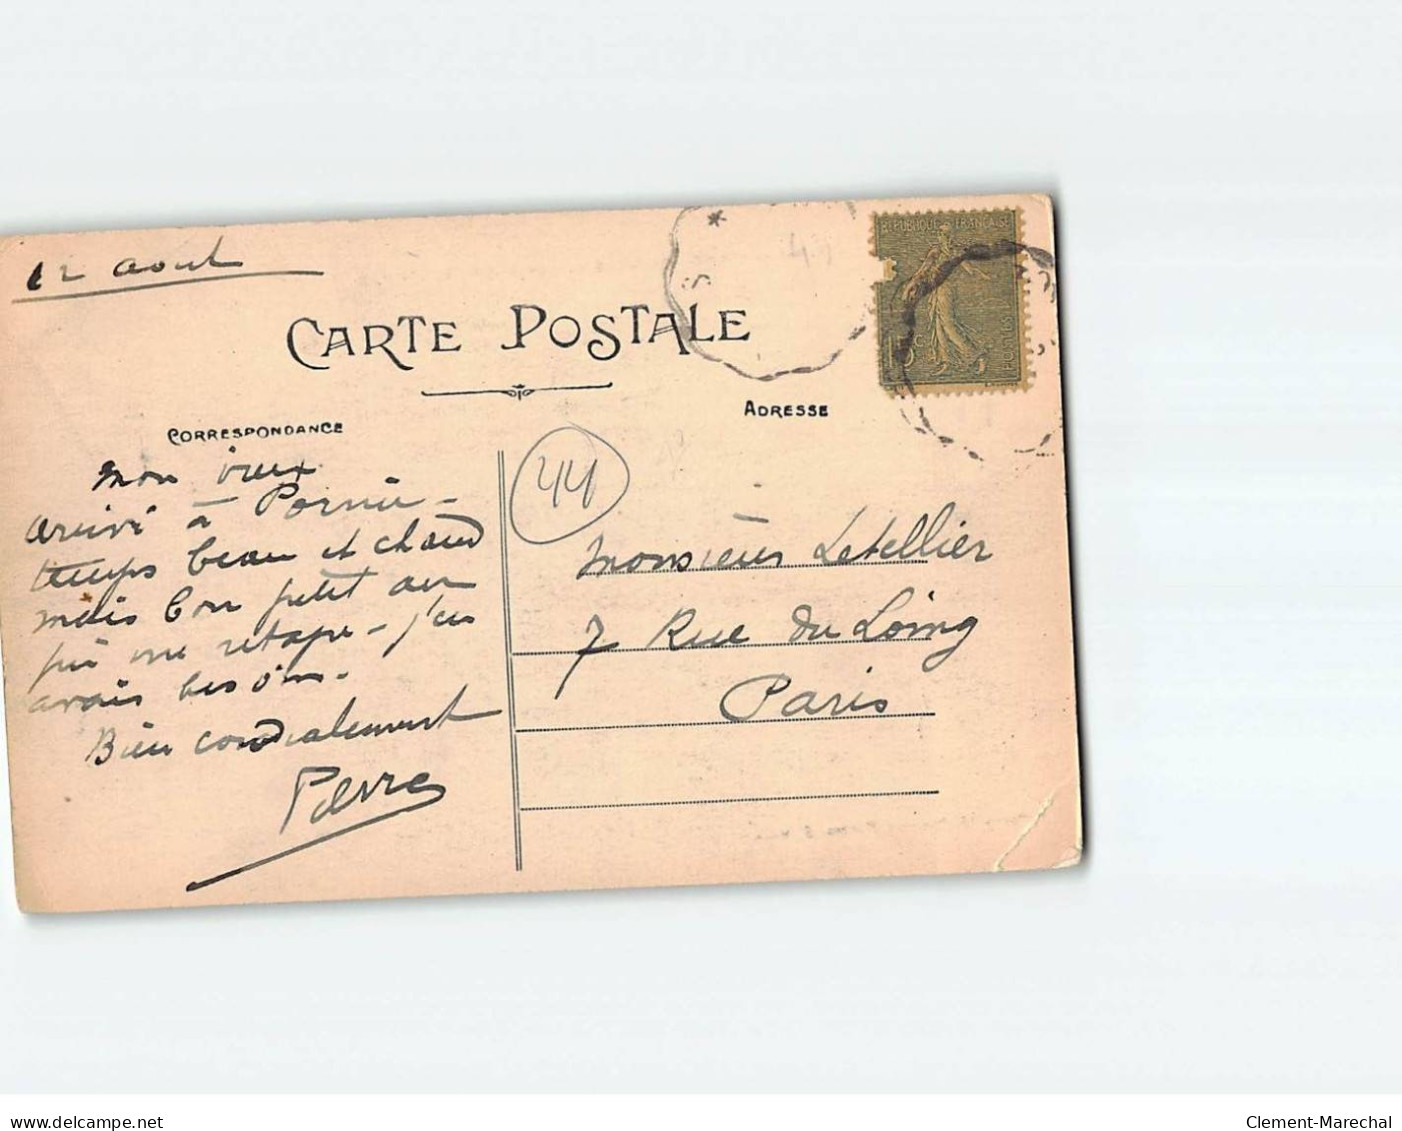 12 août
CARTE POSTALE
CORRESPONDANCE
ADRESSE
RÉPUBLIQUE FRANÇAISE
15c
44
mon vieux
arrivé à Pornic -
temps beau et chaud
mais bon petit air
qui me retape - j'en
avais besoin.
Bien cordialement
Pierre
Monsieur Letellier
7 Rue du Loing
Paris
delcampe.net
Clement-Marechal